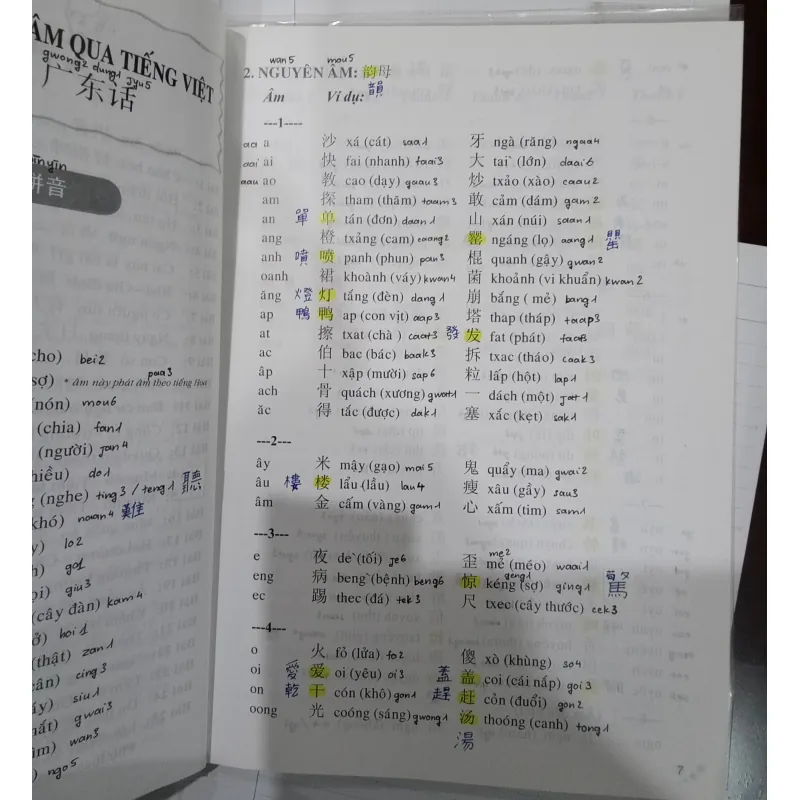 ÂM QUA TIẾNG VIỆT
gwong2 dung1 jyu5
广东话
拼音
cho) bei2
paa3
sợ) * âm này phát âm theo tiếng Hoa
nón) mou6
(chia) fan1
(người) jan4
hiều) do1
(nghe) ting3 / teng1 聽
khó) naan4 難
y) lo2
h) go1
pi) giu3
(cây đàn) kam4
ở) hoi1
(thật) zan1
cân) cing3
áy) siu1
hất) gwai3
ìm) wan3
n) ngo5
wan5 mou5
2. NGUYÊN ÂM: 韵母
Âm Ví dụ: 韻
---1----
aa a 沙 xá (cát) saa1 牙 ngà (răng) ngaa4
aai ai 快 fai (nhanh) faai3 大 tai` (lớn) daai6
aau ao 教 cạo (dạy) gaau3 炒 txảo (xào) caau2
am 探 tham (thăm) taam3 敢 cảm (dám) gam2
an 單 单 tán (đơn) daan1 山 xán (núi) saan1
ang 橙 txảng (cam) caang2 罂 ngáng (lọ) aang1 罌
anh 噴 喷 panh (phun) pan3 棍 quanh (gậy) gwan2
oanh 裙 khoành (váy) kwan4 菌 khoảnh (vi khuẩn) kwan2
ăng 燈 灯 tắng (đèn) dang1 崩 bắng ( mẻ) bang1
ap 鴨 鸭 ap (con vịt) aap3 塔 thap (tháp) taap3
at 擦 txat (chà ) caat3 發 发 fat (phát) faat3
ac 伯 bac (bác) baak3 拆 txac (tháo) caak3
âp 十 xập (mười) sap6 粒 lấp (hột) lap1
ach 骨 quách (xương) gwat1 一 dách (một) jat1
ăc 得 tắc (được) dak1 塞 xắc (kẹt) sak1
---2---
ây 米 mậy (gạo) mai5 鬼 quẩy (ma) gwai2
âu 樓 楼 lầu (lầu) lau4 瘦 xâu (gầy) sau3
âm 金 cấm (vàng) gam1 心 xấm (tim) sam1
---3---
me2
e 夜 de` (tối) je6 歪 mẻ (méo) waai1
geng1
eng 病 beng` (bệnh) beng6 惊 kéng (sợ) ging1 驚
ec 踢 thec (đá) tek3 尺 txec (cây thước) cek3
---4---
o 火 fỏ (lửa) fo2 傻 xỏ (khùng) so4
oi 愛 爱 oi (yêu) oi3 蓋 盖 coi (cái nấp) goi3
on 乾 干 cón (khô) gon1 趕 赶 cỏn (đuổi) gon2
oong 光 coóng (sáng) gwong1 汤 thoóng (canh) tong1
湯
7